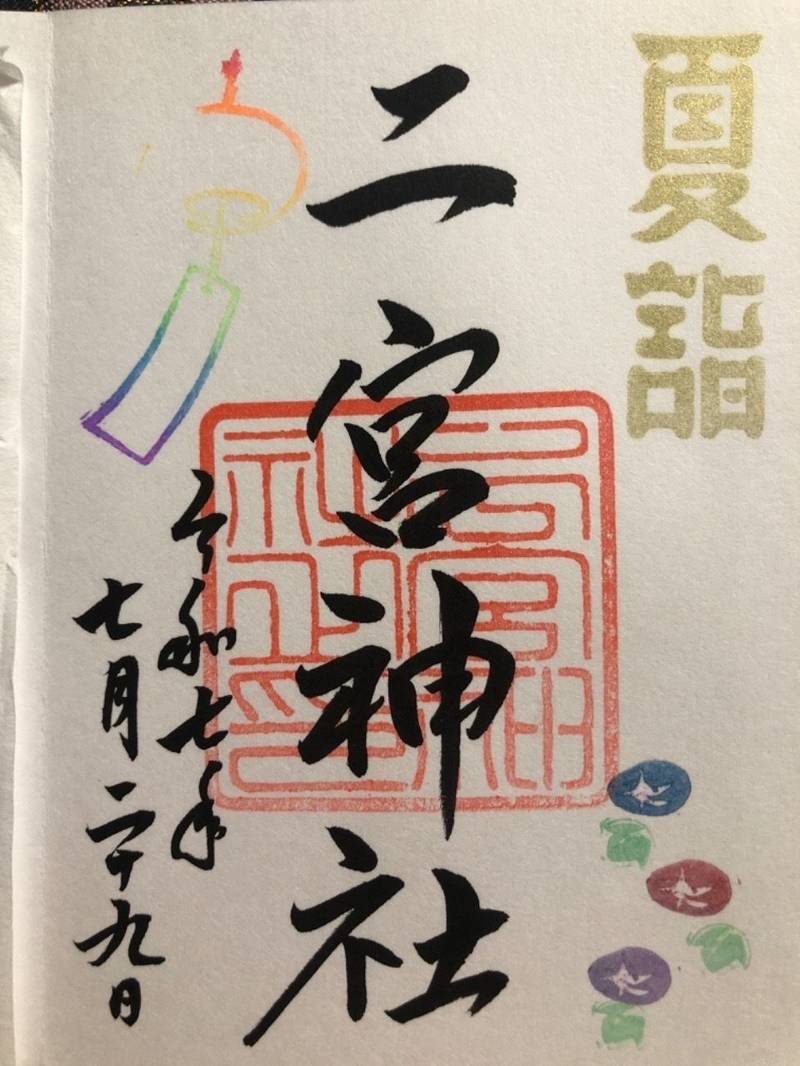 夏詣
二宮神社
令和七年
七月二十九日